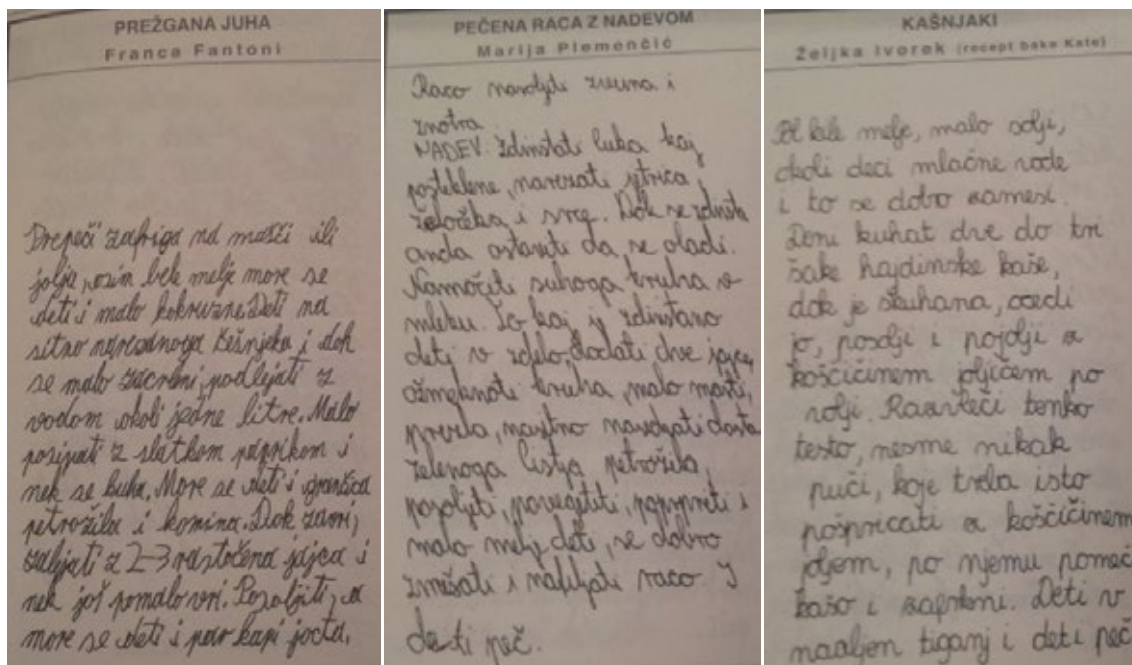 PREŽGANA JUHA
Franca Fantoni
Prepeči zafriga na mašči ili
jolja, osim bele melje more se
deti i malo kokruzne. Deti na
sitno narezanoga češnjeka i dok
se malo zacrleni, podlejati z
vodom okoli jedne litre. Malo
posipati z slatkom paprikom i
nek se kuha. More se deti i grančica
petrožila i komina. Dok zavri,
zalejati z 2-3 raztočena jajca i
nek još pomalo vri. Posoljiti, a
more se deti i par kapi jocta.
PEČENA RACA Z NADEVOM
Marija Plemenčić
Raco nasoljiti zvuna i
znotra.
NADEV: Zdinstati luka kaj
posteklene, narezati jetrica,
želočeka i srce. Dok se zdinsta
anda ostaviti da se oladi.
Namočiti suhoga kruha v
mleku. To kaj je zdinstano
deti v zdelo, dodati dve jajca,
ožmeknoti kruha, malo masti,
prveta, nasitno narezati dosta
zelenoga listja petrožila,
posoljiti, povegetiti, popapriti i
malo melje deti, se dobro
zmešati i nafiljati raco. I
de ti peč.
KAŠNJAKI
Željka Ivorek (recept bake Kate)
Pol kile melje, malo solji,
okoli deci mlačne vode
i to se dobro zamesi.
Deni kuhat dve do tri
šake hajdinske kaše,
dok je skuhana, ocedi
jo, posolji i pojolji z
koščičinem joljičem po
volji. Razvleči tenko
testo, nesme nikak
puči, koje treba isto
pošpricati z koščičinem
joljem, po njemu pomeč
kašo i zafrkni. Deti v
nauljen tiganj i deti peč